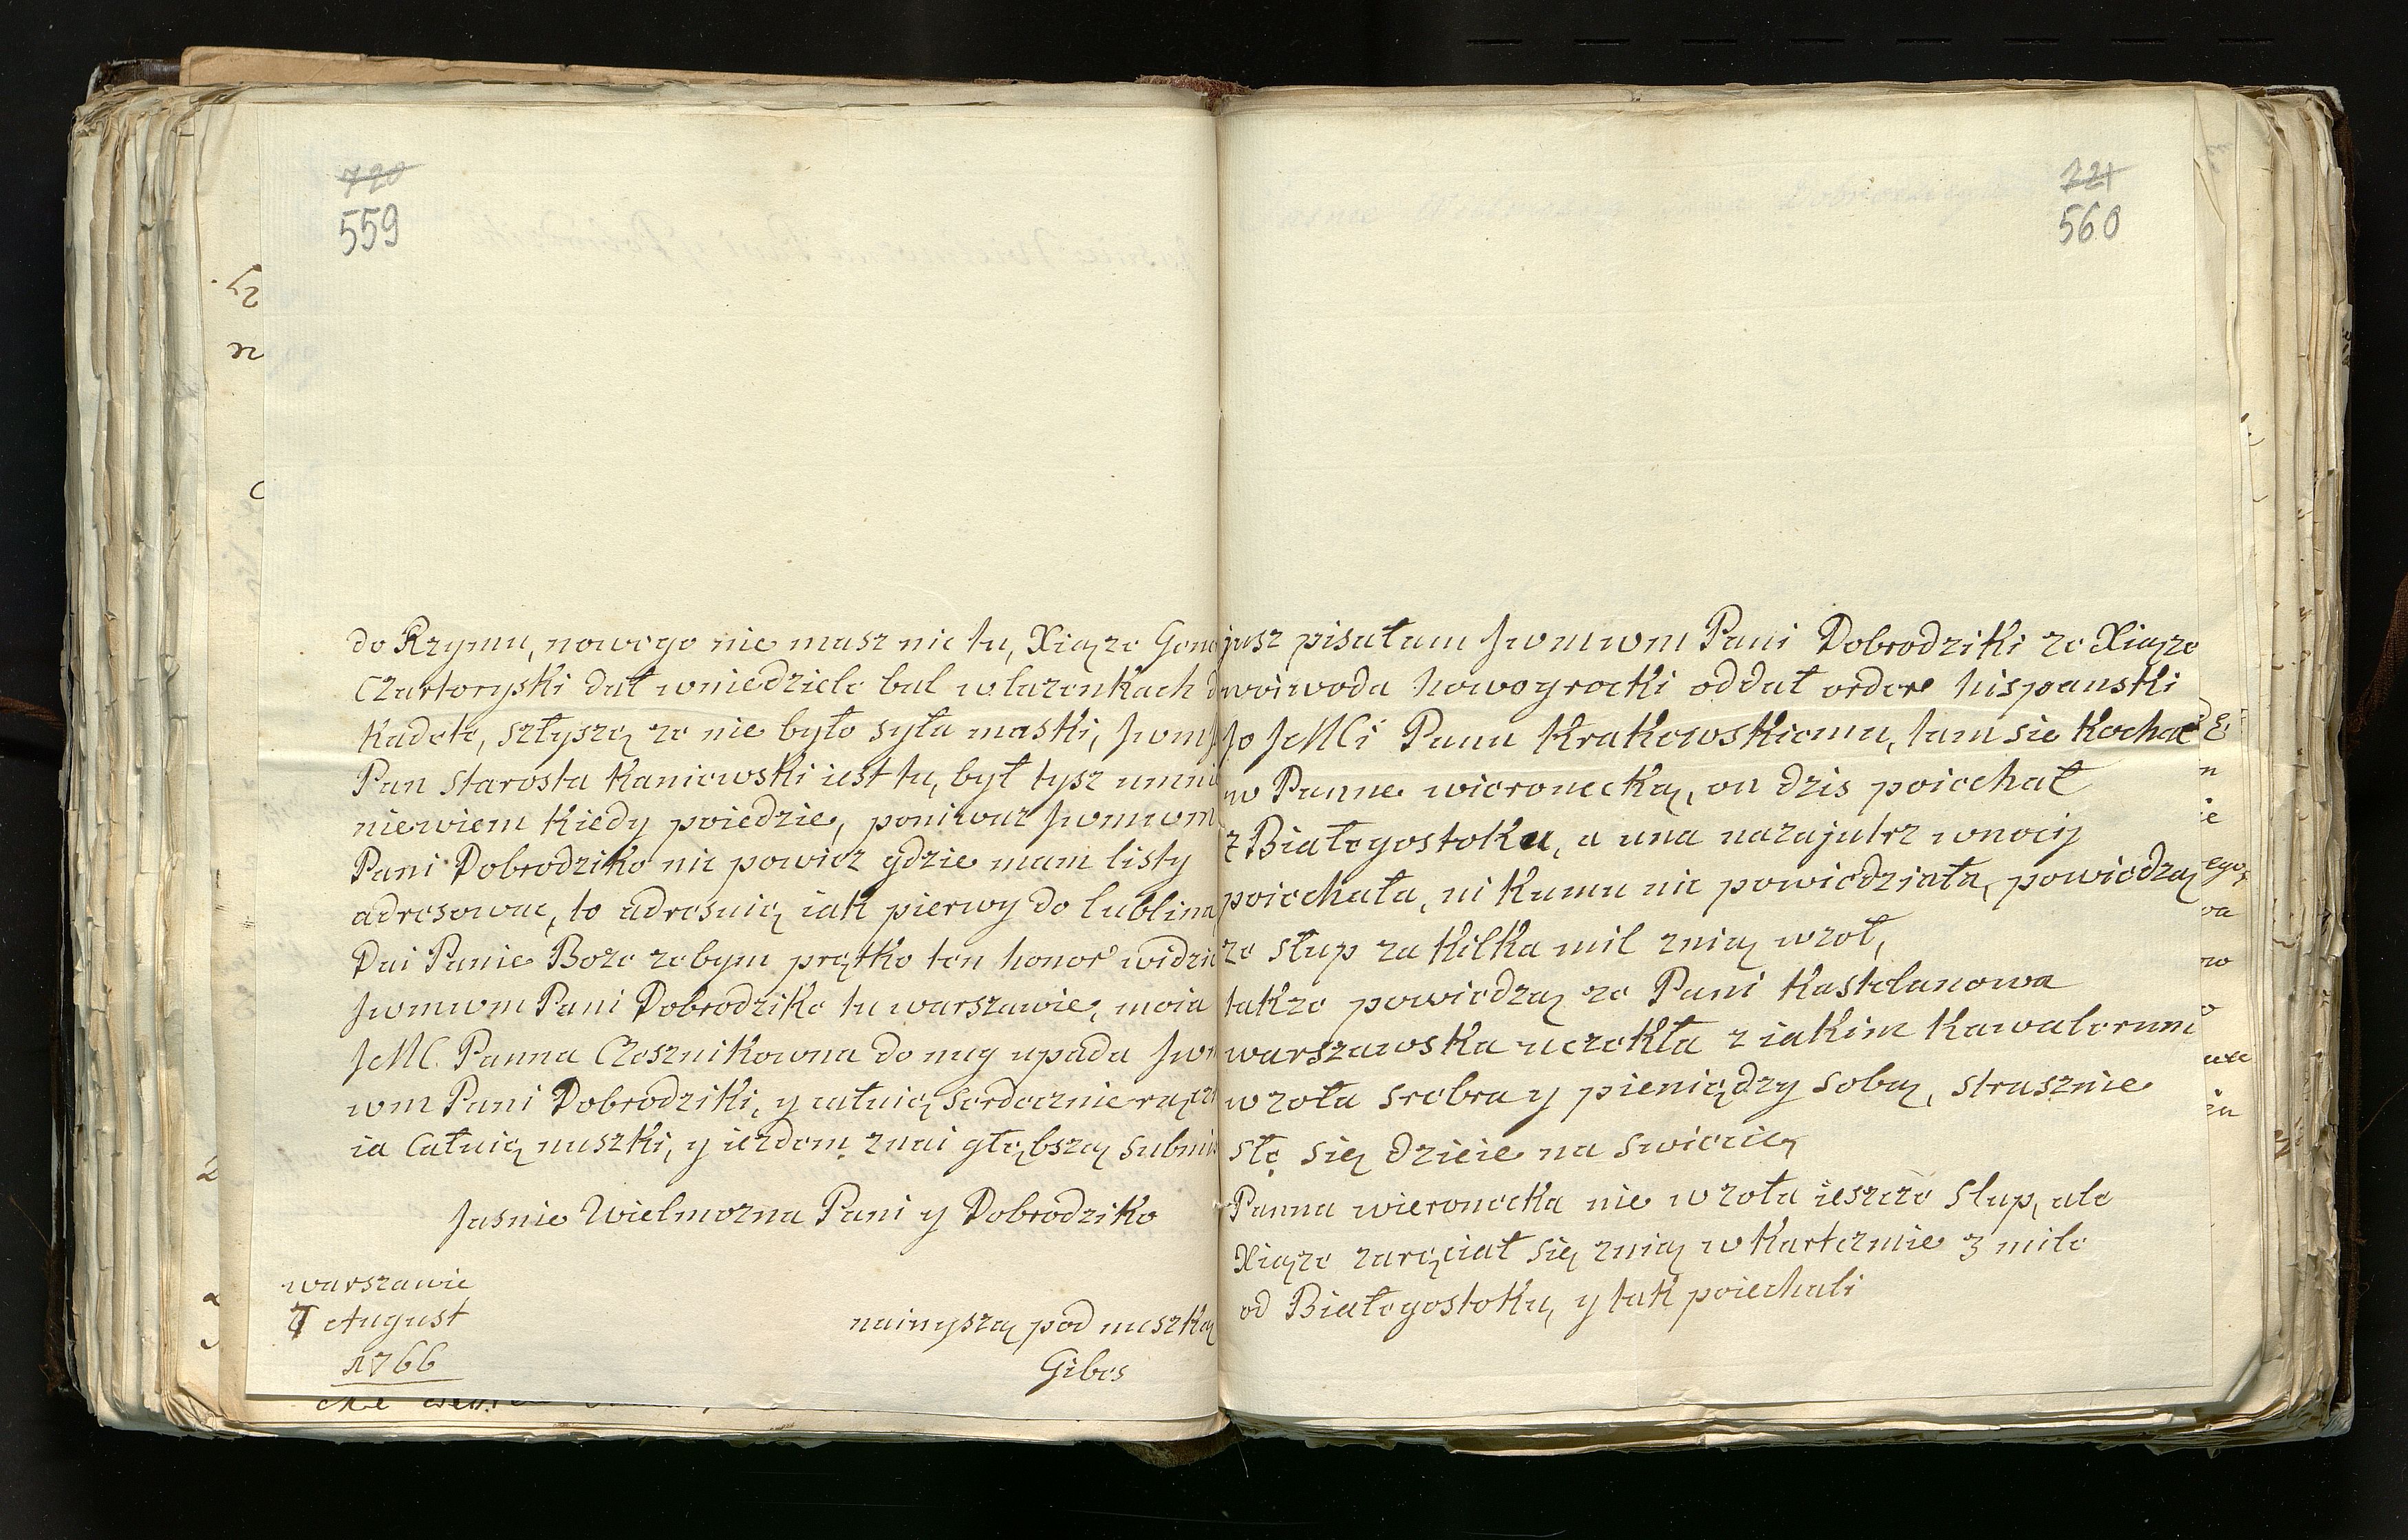 720
559
do Rzymu, nowego nie masz nic tu, Xiąze Gene
Czartoryski dał wniedziele bal wlazenkach d
Kadete, sztyszę ze nie było syła maski, Jwm
Pan Starosta Kaniewski iest tu, był tysz umni
niewiem kiedy poiedzie, poniwaz Jwmwm
Pani Dobrodziko nic powiez gdzie mam listy
adresowac, to adresuię iak pierwy do lublina
Dai Panie Boze zebym prętko ten honor widzi
Jwmwm Pani Dobrodzike tu warszawie, moia
JeMC. Panna Czesznikowna do nug upada Jwm
wm Pani Dobrodziki, y całuię serdecznie
ia Całuię nuszki, y iezdem znai głębszą submis
Jasnie Wielmozna Pani y Dobrodziko
warszawie
7 August
1766
nainyszą pod nuszką
Gibes
721
560
jusz pisałam Jwmwm Pani Dobrodziki ze Xiąze
woiwoda Nowogrocki oddał ordere hispanski
Jo JeMCi Panu Krakowskiemu, tam sie Kochał
w Panne wieronecką, on dzis poiechał
z Białegostoku, a una nazajutrz wnocy
poiechała, ni kumu nic powiedziała, powiedzą
ze słup za kilka mil znią wzoł,
takze powiedzą ze Pani Kastelanowa
warszawska uczekła z iakim Kawalerum
wzoła srebra y pieniędzy sobą, strasznie
słe się dzieie na swiecię
Panna wieronecka nie wzoła ieszcze słup, ale
Xiąze zaręciał się znią w Kartczmie 3 mile
od Białegostoku, y tak poiechali